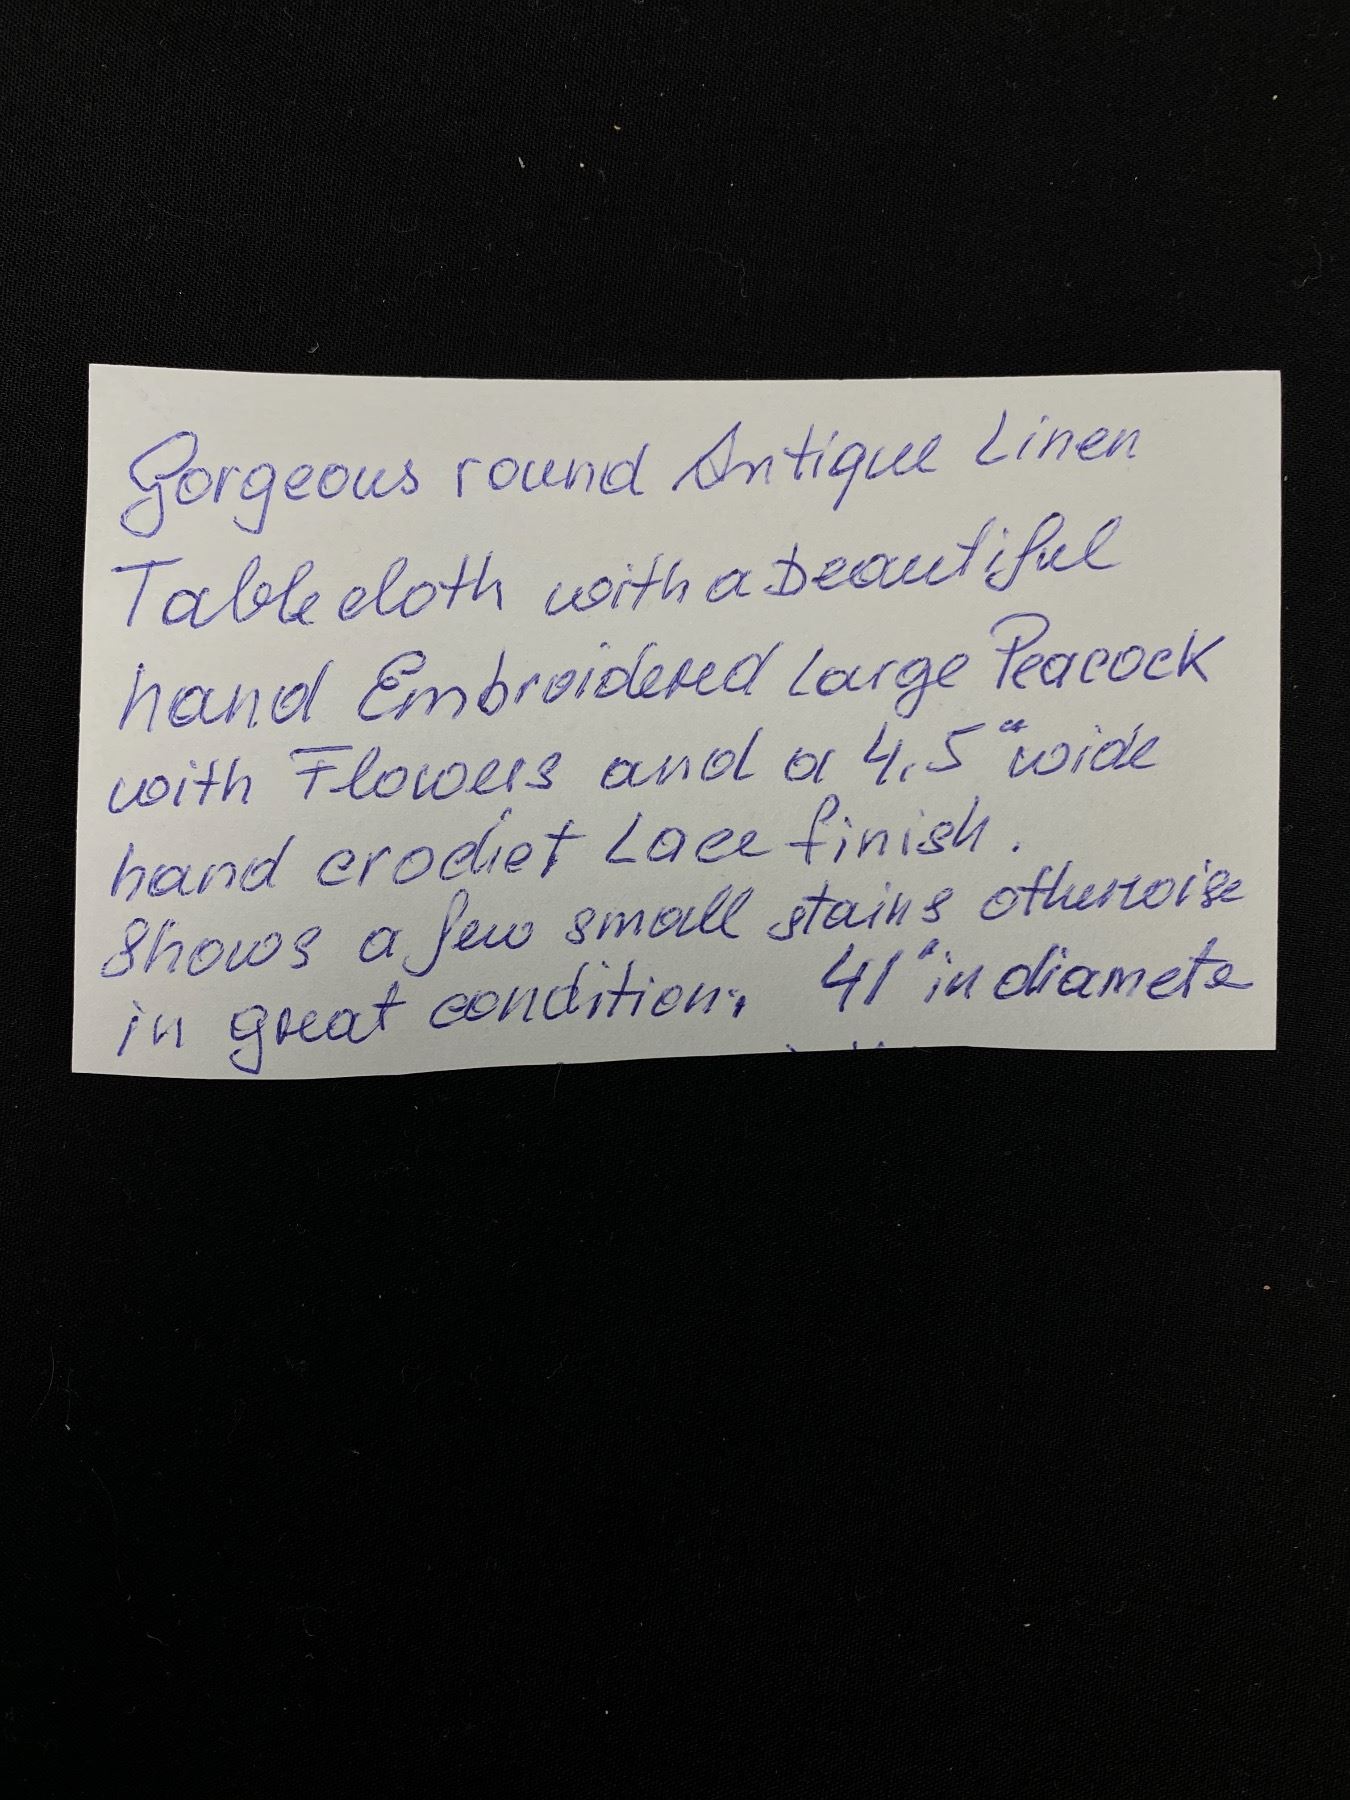 Gorgeous round Antique Linen
Tablecloth with a beautiful
hand Embroidered Large Peacock
with Flowers and a 4.5" wide
hand crochet Lace finish.
Shows a few small stains otherwise
in great condition. 41" in diameter